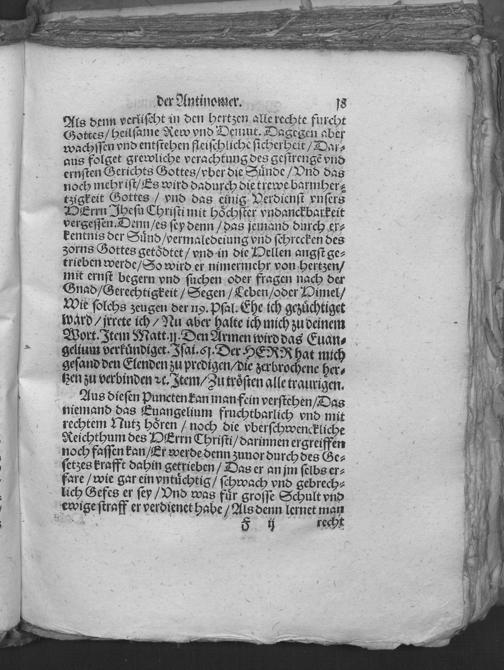 der Antinomer. 18
Als denn verlischt in den hertzen alle rechte furcht
Gottes/ heilsame Rew vnd Demut. Dagegen aber
wachssen vnd entstehen fleischliche sicherheit/ Dar-
aus folget grewliche verachtung des gestrengē vnd
ernsten Gerichts Gottes/ vber die Sünde/ Vnd das
noch mehr ist/ Es wird dadurch die trewe barmher-
tzigkeit Gottes/ vnd das einig Verdienst vnsers
HErrn Jhesu Christi mit höchster vndanckbarkeit
vergessen. Denn/ es sey denn/ das jemand durch er-
kentnis der Sünd/ vermaledeiung vnd schrecken des
zorns Gottes getödtet/ vnd in die Hellen angst ge-
trieben werde/ So wird er nimermehr von hertzen/
mit ernst begern vnd suchen oder fragen nach der
Gnad/ Gerechtigkeit/ Segen/ Leben/ oder Himel/
Wie solchs zeugen der 119. Psal. Ehe ich gezüchtiget
ward/ jrrete ich/ Nu aber halte ich mich zu deinem
Wort. Item Matt. 11. Den Armen wird das Euan-
gelium verkündiget. Isai. 61. Der HERR hat mich
gesand den Elenden zu predigen/ die zerbrochene her-
tzen zu verbinden ꝛc. Item/ Zu trösten alle traurigen.
Aus diesen Puncten kan man fein verstehen/ Das
niemand das Euangelium fruchtbarlich vnd mit
rechtem Nutz hören/ noch die vberschwenckliche
Reichthum des HErrn Christi/ darinnen ergreiffen
noch fassen kan/ Er werde denn zuuor durch des Ge-
setzes krafft dahin getrieben/ Das er an jm selbs er-
fare/ wie gar ein vntüchtig/ schwach vnd gebrech-
lich Gefes er sey/ Vnd was für grosse Schult vnd
ewige straff er verdienet habe/ Als denn lernet man
F ij recht